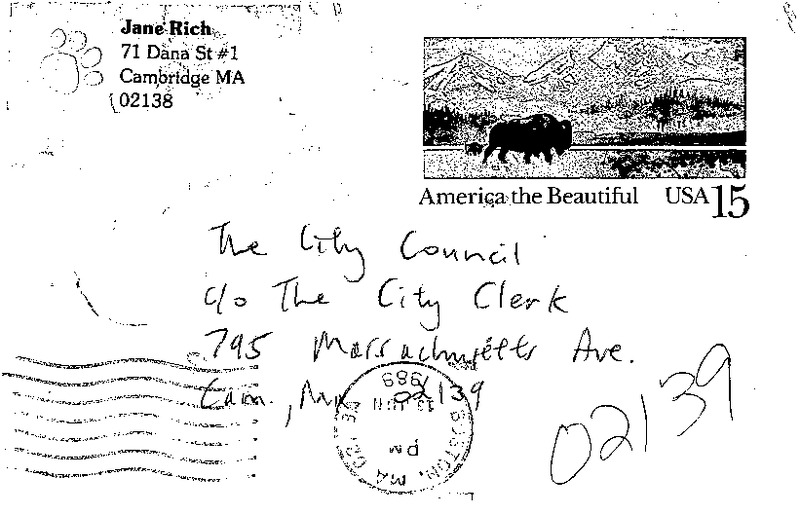 Jane Rich
71 Dana St #1
Cambridge MA
02138
America the Beautiful USA 15
The City Council
c/o The City Clerk
795 Massachusetts Ave.
Cam., Ma 02139
02139
BOSTON, MA 021
PM
JUN
1989